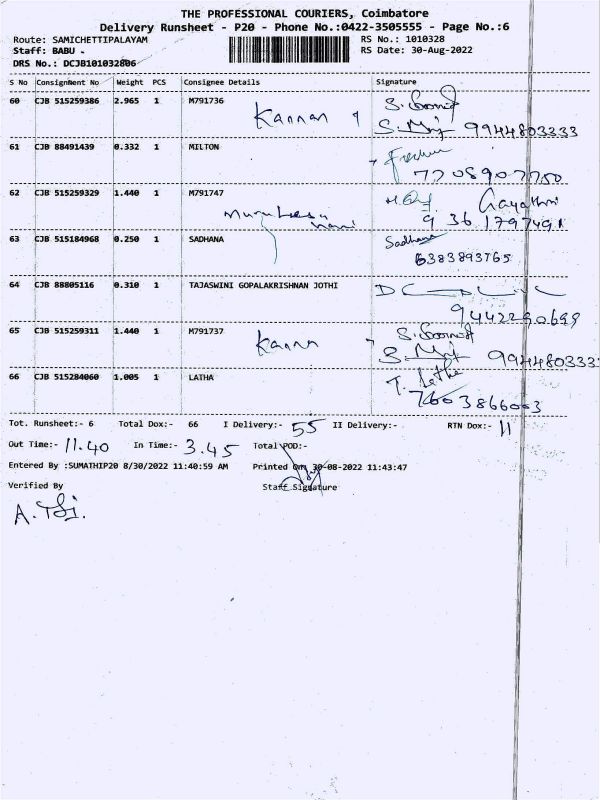 THE PROFESSIONAL COURIERS, Coimbatore
Delivery Runsheet - P20 - Phone No.:0422-3505555 - Page No.:6
Route: SAMICHETTIPALAYAM RS No.: 1010328
Staff: BABU - RS Date: 30-Aug-2022
DRS No.: DCJB101032806
S No Consignment No Weight PCS Consignee Details Signature
60 CJB 515259386 2.965 1 M791736 Kannan
9944803333
61 CJB 88491439 0.332 1 MILTON
7708907750
62 CJB 515259329 1.440 1 M791747 Gayathri
9361797491
63 CJB 515184968 0.250 1 SADHANA Sadhana
6383893765
64 CJB 88805116 0.310 1 TAJASWINI GOPALAKRISHNAN JOTHI
9442290699
65 CJB 515259311 1.440 1 M791737
994480333
66 CJB 515284060 1.005 1 LATHA T. Latha
7603866003
Tot. Runsheet:- 6 Total Dox:- 66 I Delivery:- 55 II Delivery:- RTN Dox:- 11
Out Time:- 11.40 In Time:- 3.45 Total POD:-
Entered By :SUMATHIP20 8/30/2022 11:40:59 AM Printed On: 30-08-2022 11:43:47
Verified By Staff Signature